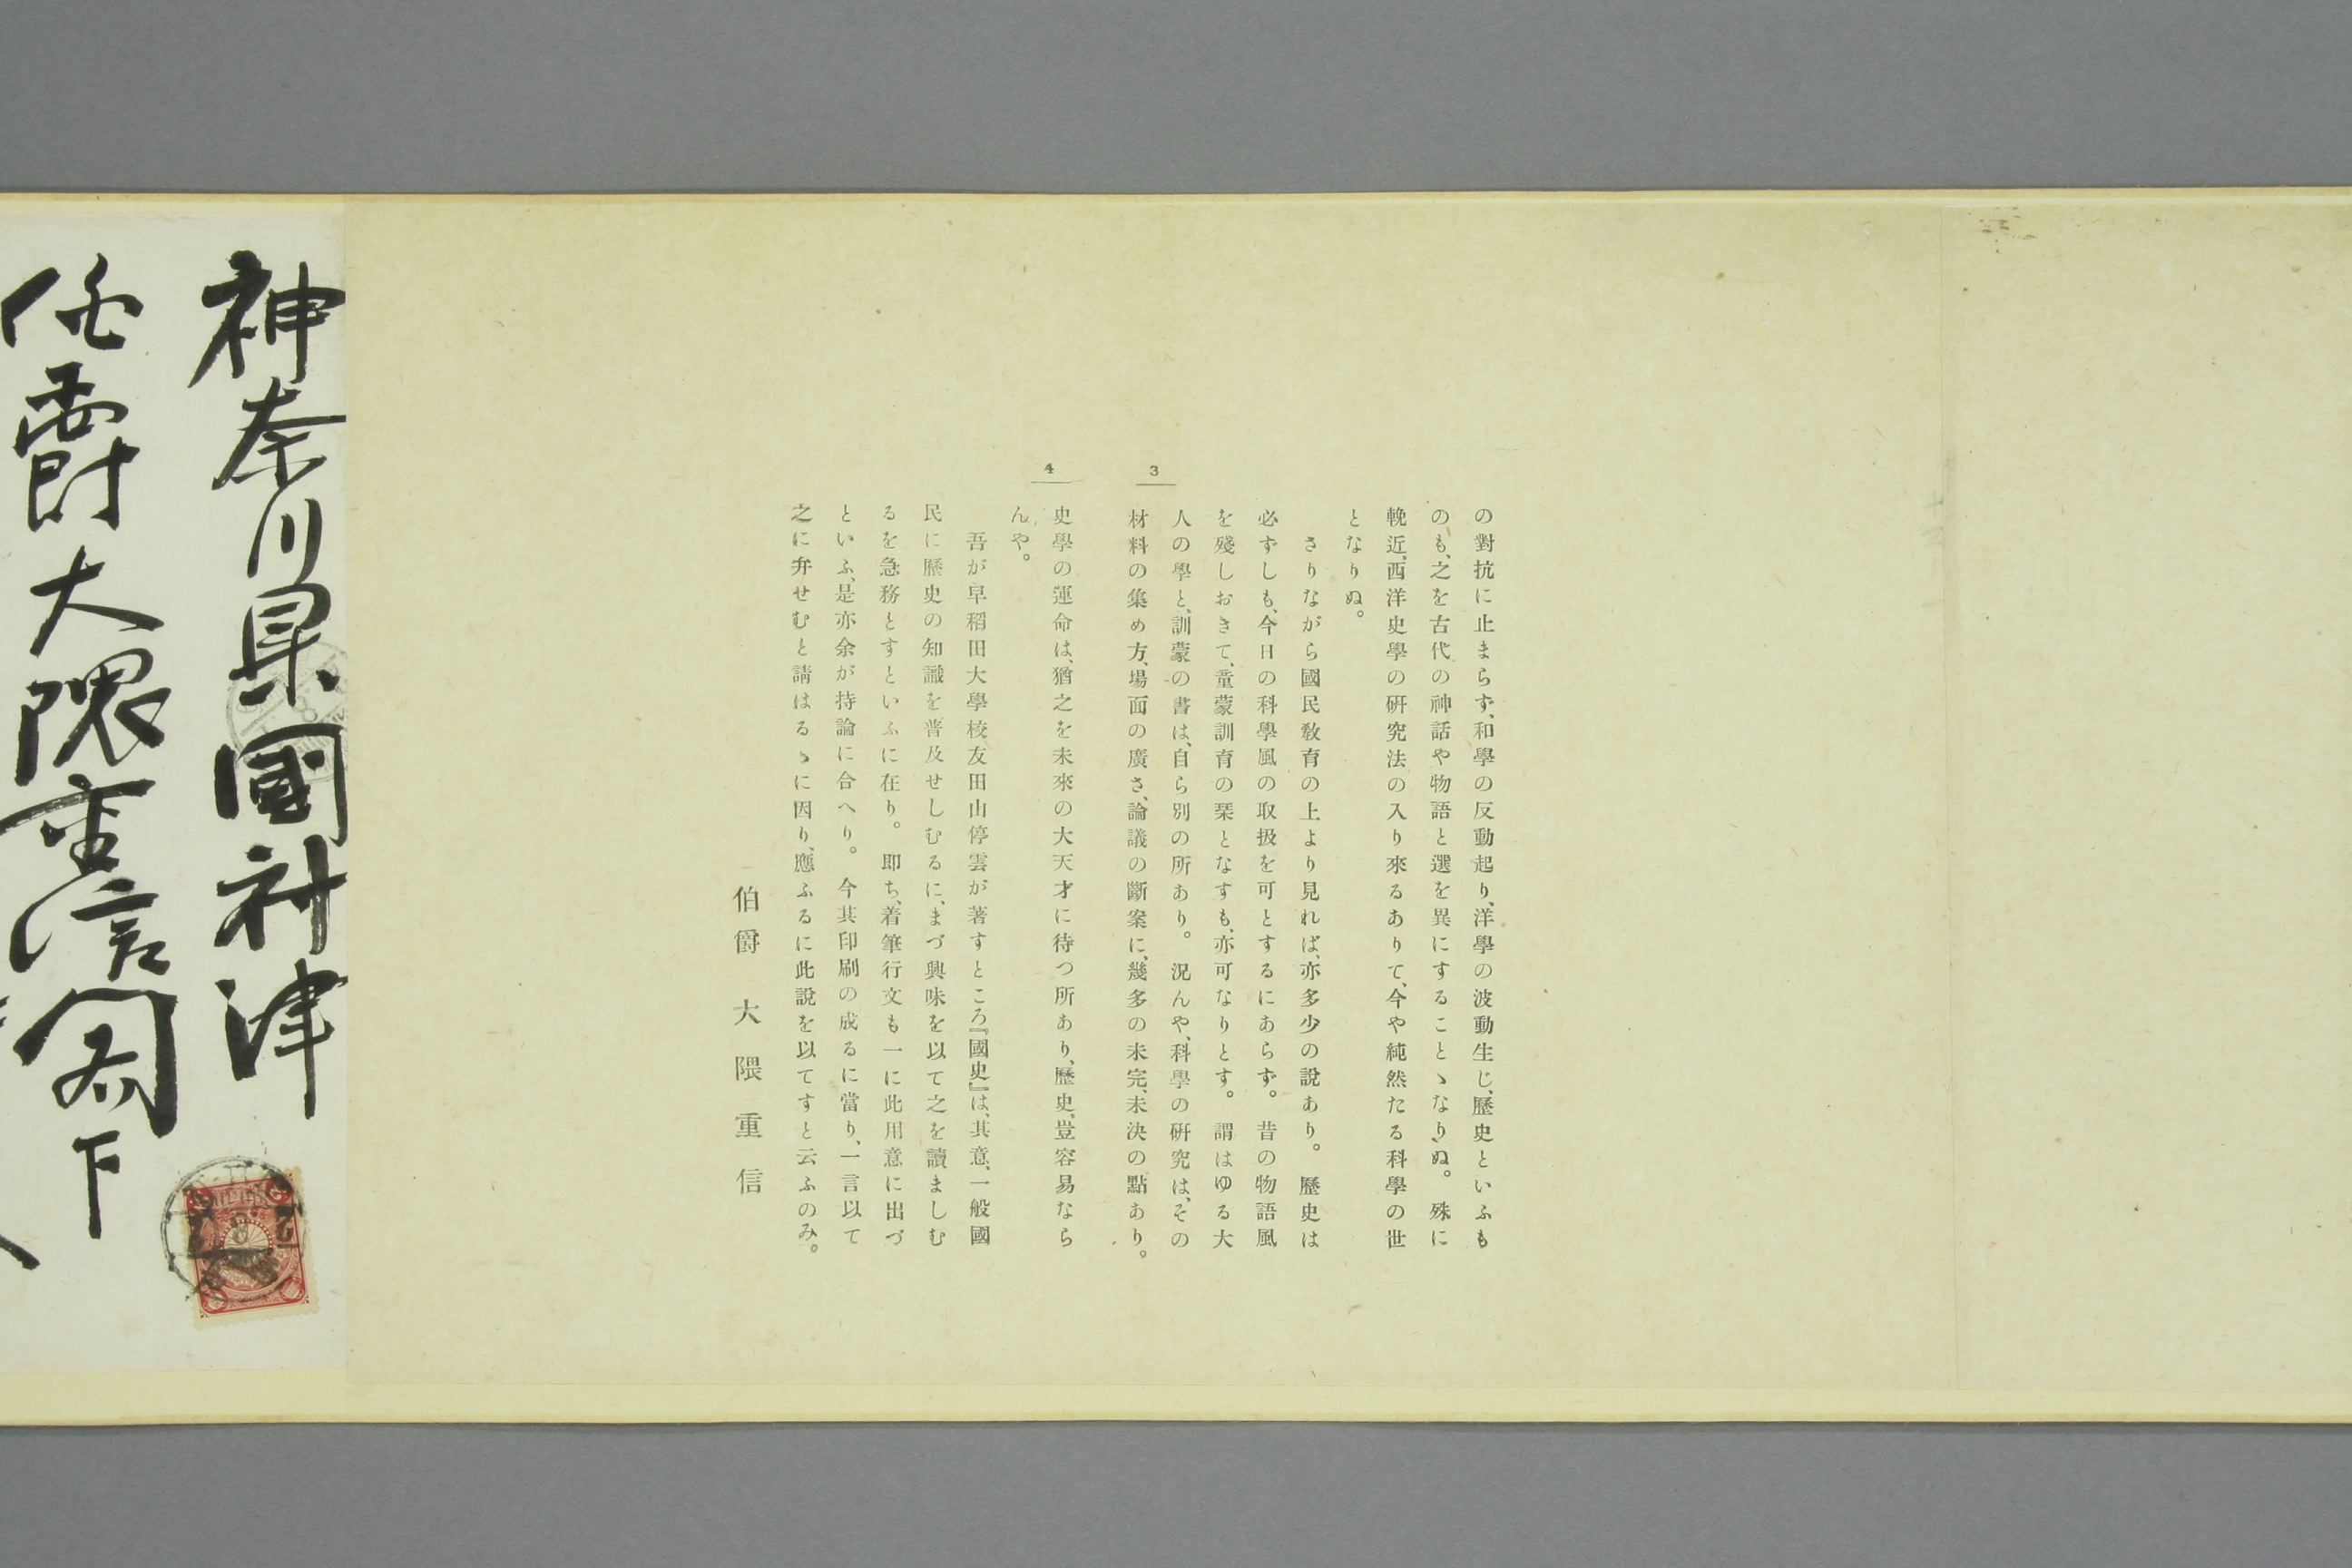 の對抗に止まらず、和學の反動起り、洋學の波動生じ、歷史といふも
のも、之を古代の神話や物語と選を異にすることゝなりぬ。殊に
輓近、西洋史學の硏究法の入り來るありて、今や純然たる科學の世
となりぬ。
さりながら國民敎育の上より見れば、亦多少の說あり。歷史は
必ずしも、今日の科學風の取扱を可とするにあらず。昔の物語風
を殘しおきて、童蒙訓育の栞となすも、亦可なりとす。謂はゆる大
人の學と、訓蒙の書は、自ら別の所あり。況んや、科學の硏究は、その
材料の集め方、場面の廣さ、論議の斷案に、幾多の未完、未決の點あり。
3
4
史學の運命は、猶之を未來の大天才に待つ所あり、歷史、豈容易なら
んや。
吾が早稻田大學校友田山停雲が著すところ『國史』は、其意、一般國
民に歷史の知識を普及せしむるに、まづ興味を以て之を讀ましむ
るを急務とすといふに在り。卽ち、着筆行文も一に此用意に出づ
といふ、是亦余が持論に合へり。今其印刷の成るに當り、一言以て
之に弁せむと請はるゝに因り、應ふるに此說を以てすと云ふのみ。
伯爵 大隈重信
神奈川県國府津
伯爵大隈重信閣下